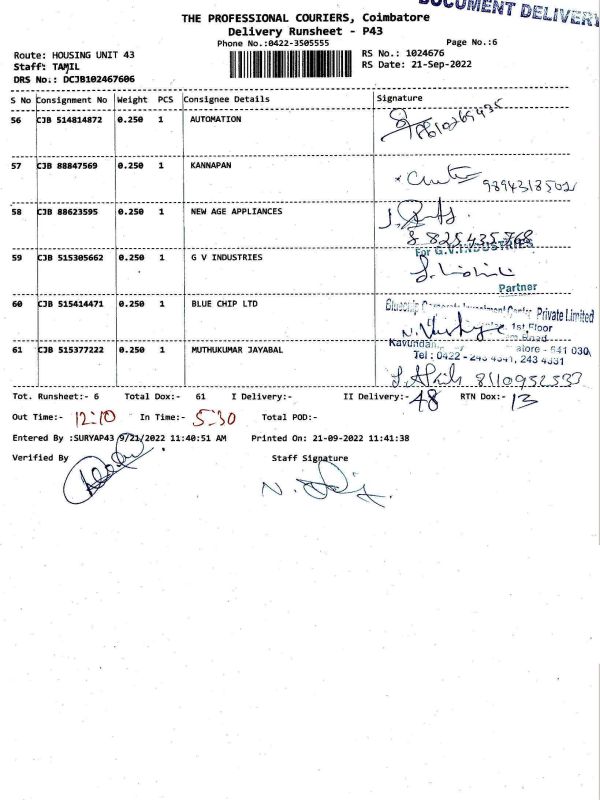 DOCUMENT DELIVERY
THE PROFESSIONAL COURIERS, Coimbatore
Delivery Runsheet - P43
Phone No.:0422-3505555
Page No.:6
Route: HOUSING UNIT 43
RS No.: 1024676
Staff: TAMIL
RS Date: 21-Sep-2022
DRS No.: DCJB102467606
S No Consignment No Weight PCS Consignee Details Signature
56 CJB 514814872 0.250 1 AUTOMATION
57 CJB 88847569 0.250 1 KANNAPAN
9894318502
58 CJB 88623595 0.250 1 NEW AGE APPLIANCES
For G.V.INDUSTRIES
59 CJB 515305662 0.250 1 G V INDUSTRIES
Partner
60 CJB 515414471 0.250 1 BLUE CHIP LTD
Private Limited
1st Floor
61 CJB 515377222 0.250 1 MUTHUKUMAR JAYABAL
Tel : 0422 - 243 4341, 243 4331
8110952533
Tot. Runsheet:- 6 Total Dox:- 61 I Delivery:- II Delivery:- 48 RTN Dox:- 13
Out Time:- 12:10 In Time:- 5:30 Total POD:-
Entered By :SURYAP43 9/21/2022 11:40:51 AM Printed On: 21-09-2022 11:41:38
Verified By Staff Signature